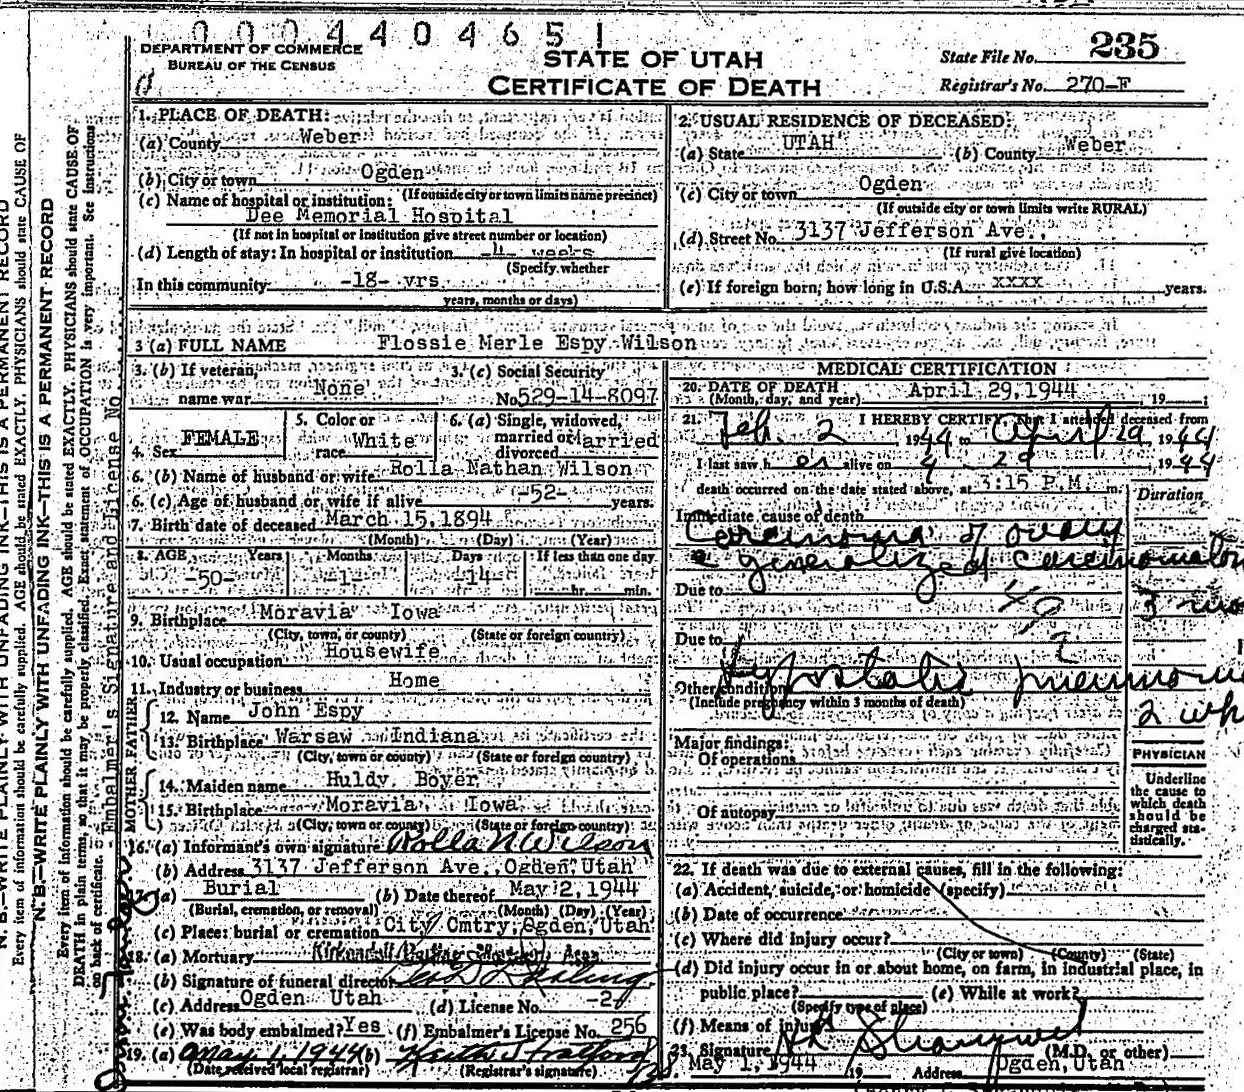 0004404651
DEPARTMENT OF COMMERCE
BUREAU OF THE CENSUS
STATE OF UTAH
CERTIFICATE OF DEATH
State File No. 235
Registrar's No. 270-F
1. PLACE OF DEATH:
(a) County Weber
(b) City or town Ogden
(If outside city or town limits name precinct)
(c) Name of hospital or institution:
Dee Memorial Hospital
(If not in hospital or institution give street number or location)
(d) Length of stay: In hospital or institution -4- weeks
(Specify whether
In this community -18- yrs
years, months or days)
2. USUAL RESIDENCE OF DECEASED:
(a) State UTAH (b) County Weber
(c) City or town Ogden
(If outside city or town limits write RURAL)
(d) Street No. 3137 Jefferson Ave.,
(If rural give location)
(e) If foreign born, how long in U.S.A. xxxx years.
3 (a) FULL NAME Flossie Merle Espy Wilson
3. (b) If veteran, name war None
3. (c) Social Security No 529-14-8097
4. Sex FEMALE
5. Color or race White
6. (a) Single, widowed, married or divorced Married
6. (b) Name of husband or wife Rolla Nathan Wilson
6. (c) Age of husband or wife if alive -52- years.
7. Birth date of deceased March 15, 1894
(Month) (Day) (Year)
8. AGE Years Months Days If less than one day
-50- -1- -14- hr. min.
9. Birthplace Moravia Iowa
(City, town, or county) (State or foreign country)
10. Usual occupation Housewife
11. Industry or business Home
FATHER
12. Name John Espy
13. Birthplace Warsaw Indiana
(City, town or county) (State or foreign country)
MOTHER
14. Maiden name Huldy Boyer
15. Birthplace Moravia Iowa
(City, town or county) (State or foreign country)
16. (a) Informant's own signature Rolla N Wilson
(b) Address 3137 Jefferson Ave., Ogden, Utah
17. (a) Burial (b) Date thereof May 2, 1944
(Burial, cremation, or removal) (Month) (Day) (Year)
(c) Place: burial or cremation City Cmtry, Ogden, Utah
18. (a) Mortuary
(b) Signature of funeral director
(c) Address Ogden Utah (d) License No. -2-
(e) Was body embalmed? Yes (f) Embalmer's License No. 256
19. (a) May 1, 1944 (b) Keith Stratford
(Date received local registrar) (Registrar's signature)
MEDICAL CERTIFICATION
20. DATE OF DEATH April 29, 1944
(Month, day, and year) , 19 ;
21. I HEREBY CERTIFY That I attended deceased from
Feb. 2 1944 to April 29, 1944
I last saw her alive on 4 29 1944
death occurred on the date stated above, at 3:15 P.M. m.
Duration
Immediate cause of death
Carcinoma of ovary
generalized
Due to 49
3 mo
Due to 2
Other conditions Hypostatic
(Include pregnancy within 3 months of death)
2 wk
Major findings:
Of operations
Of autopsy
PHYSICIAN
Underline
the cause to
which death
should be
charged sta-
tistically.
22. If death was due to external causes, fill in the following:
(a) Accident, suicide, or homicide (specify)
(b) Date of occurrence
(c) Where did injury occur?
(City or town) (County) (State)
(d) Did injury occur in or about home, on farm, in industrial place, in
public place? (e) While at work?
(Specify type of place)
(f) Means of injury
23. Signature (M.D. or other)
May 1, 1944 19 Address Ogden, Utah
N. B.—WRITE PLAINLY WITH UNFADING INK—THIS IS A PERMANENT RECORD
Every item of information should be carefully supplied. AGE should be stated EXACTLY. PHYSICIANS should state CAUSE OF
N. B.—WRITE PLAINLY WITH UNFADING INK—THIS IS A PERMANENT RECORD
Every item of information should be carefully supplied. AGE should be stated EXACTLY. PHYSICIANS should state CAUSE OF
DEATH in plain terms, so that it may be properly classified. Exact statement of OCCUPATION is very important. See instructions
on back of certificate.
Embalmer's Signature and License No.